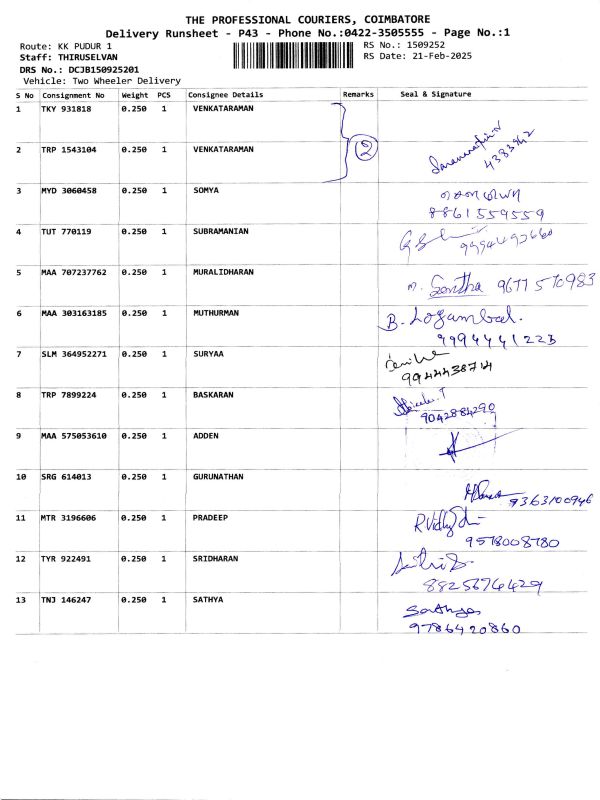 THE PROFESSIONAL COURIERS, COIMBATORE
Delivery Runsheet - P43 - Phone No.:0422-3505555 - Page No.:1
Route: KK PUDUR 1
RS No.: 1509252
Staff: THIRUSELVAN
RS Date: 21-Feb-2025
DRS No.: DCJB150925201
Vehicle: Two Wheeler Delivery
S No Consignment No Weight PCS Consignee Details Remarks Seal & Signature
1 TKY 931818 0.250 1 VENKATARAMAN
2 TRP 1543104 0.250 1 VENKATARAMAN 2
3 MYD 3060458 0.250 1 SOMYA
8861559559
4 TUT 770119 0.250 1 SUBRAMANIAN
5 MAA 707237762 0.250 1 MURALIDHARAN M. Santha 9677570983
6 MAA 303163185 0.250 1 MUTHURMAN B. Logambal.
9994441223
7 SLM 364952271 0.250 1 SURYAA
9944438714
8 TRP 7899224 0.250 1 BASKARAN
9042884290
9 MAA 575053610 0.250 1 ADDEN
10 SRG 614013 0.250 1 GURUNATHAN
9363100946
11 MTR 3196606 0.250 1 PRADEEP
9578008780
12 TYR 922491 0.250 1 SRIDHARAN
8825676429
13 TNJ 146247 0.250 1 SATHYA Sathya
9786420860